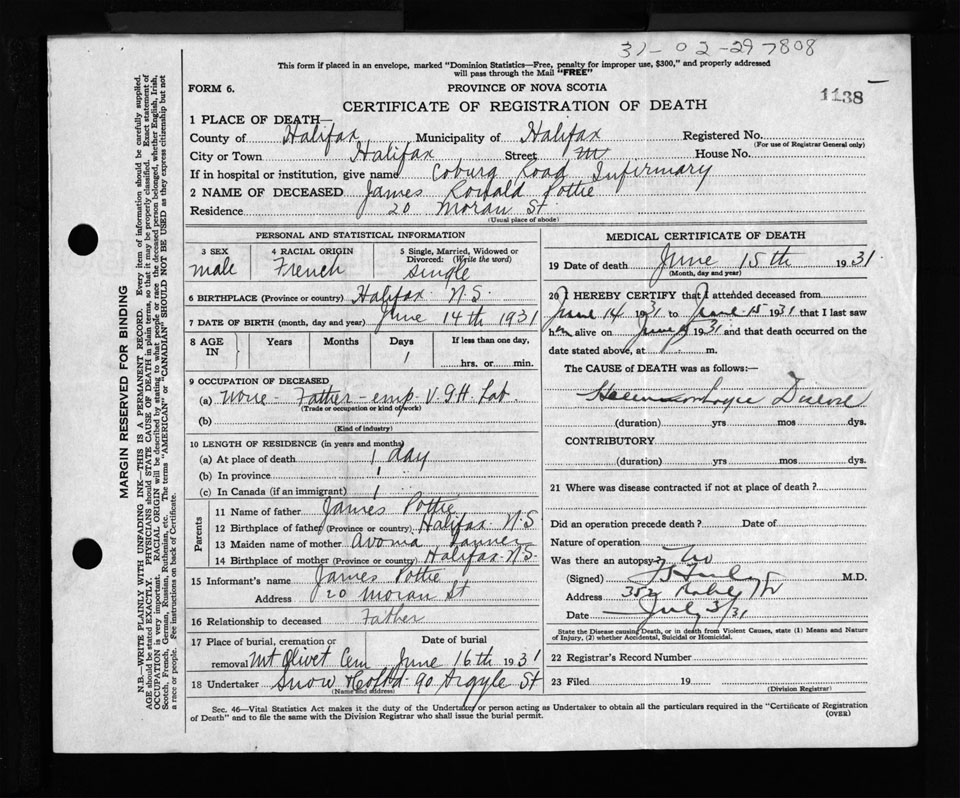 31-02-297808
This form if placed in an envelope, marked "Dominion Statistics—Free, penalty for improper use, $300," and properly addressed
will pass through the Mail "FREE"
FORM 6.
PROVINCE OF NOVA SCOTIA
1138
CERTIFICATE OF REGISTRATION OF DEATH
1 PLACE OF DEATH—
County of Halifax Municipality of Halifax Registered No.
(For use of Registrar General only)
City or Town Halifax Street House No.
If in hospital or institution, give name Coburg Road Infirmary
2 NAME OF DECEASED James Ronald Pottie
Residence 20 Moran St
(Usual place of abode)
PERSONAL AND STATISTICAL INFORMATION
3 SEX 4 RACIAL ORIGIN 5 Single, Married, Widowed or
Divorced: (Write the word)
male French single
6 BIRTHPLACE (Province or country) Halifax N.S.
7 DATE OF BIRTH (month, day and year) June 14th 1931
8 AGE IN Years Months Days If less than one day,
1 hrs. or min.
9 OCCUPATION OF DECEASED
(a) none - Father - emp V.G.H. Lab
(Trade or occupation or kind of work)
(b)
(Kind of industry)
10 LENGTH OF RESIDENCE (in years and months)
(a) At place of death 1 day
(b) In province 1
(c) In Canada (if an immigrant) 1
Parents
11 Name of father James Pottie
12 Birthplace of father (Province or country) Halifax N.S
13 Maiden name of mother Avoma
14 Birthplace of mother (Province or country) Halifax N.S.
15 Informant's name James Pottie
Address 20 Moran St
16 Relationship to deceased Father
17 Place of burial, cremation or Date of burial
removal Mt Olivet Cem June 16th 1931
18 Undertaker Snow & Co Ltd 90 Argyle St
(Name and address)
MEDICAL CERTIFICATE OF DEATH
19 Date of death June 15th 1931
(Month, day and year)
20 I HEREBY CERTIFY that I attended deceased from
June 14 1931 to June 15 1931 that I last saw
him alive on June 1931 and that death occurred on the
date stated above, at m.
The CAUSE of DEATH was as follows:—
Disease
(duration) yrs mos dys.
CONTRIBUTORY
(duration) yrs mos dys.
21 Where was disease contracted if not at place of death?
Did an operation precede death? Date of
Nature of operation
Was there an autopsy? No
(Signed) M.D.
Address
Date July 3/31
State the Disease causing Death, or in death from Violent Causes, state (1) Means and Nature
of Injury, (2) whether Accidental, Suicidal or Homicidal.
22 Registrar's Record Number
23 Filed 19
(Division Registrar)
Sec. 46—Vital Statistics Act makes it the duty of the Undertaker or person acting as Undertaker to obtain all the particulars required in the "Certificate of Registration
of Death" and to file the same with the Division Registrar who shall issue the burial permit.
(OVER)
MARGIN RESERVED FOR BINDING
N.B.—WRITE PLAINLY WITH UNFADING INK—THIS IS A PERMANENT RECORD. Every item of information should be carefully supplied.
AGE should be stated EXACTLY. PHYSICIANS should STATE CAUSE OF DEATH in plain terms, so that it may be properly classified. Exact statement of
OCCUPATION is very important. RACIAL ORIGIN will be described by stating to what people or race the deceased person belonged, whether English, Irish,
Scotch, French, German, Russian, Ruthenian, etc. The terms "AMERICAN" or "CANADIAN" SHOULD NOT BE USED as they express citizenship but not
a race or people. See instructions on back of Certificate.